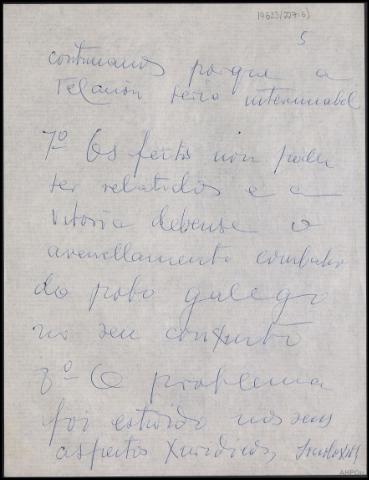 19623/227-5)
5
continuamos porque a
relación seria interminabel
7º Os feitos non poden
ser rebatidos e a
vitoria debense o
combativo
do pobo galego
no seu conxunto
8º O problema
foi estuido nos seus
aspeitos xuridicos,
AHPOu